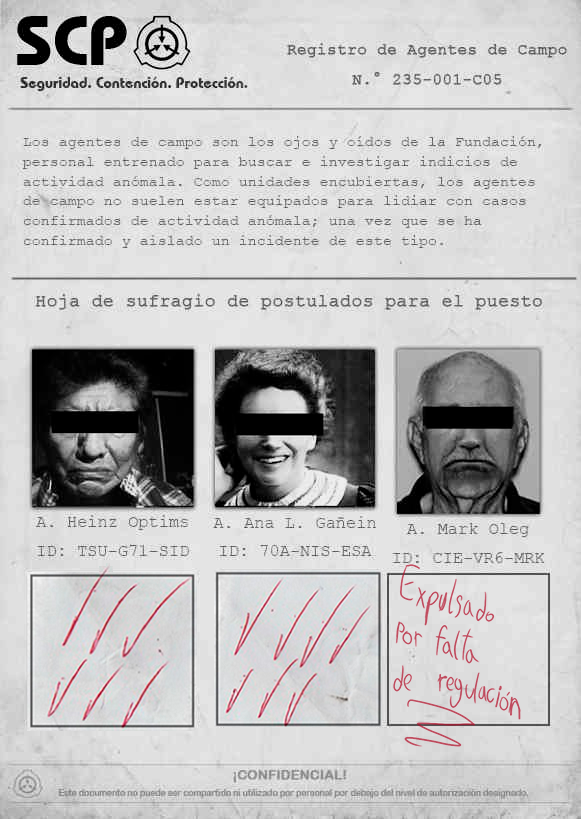 SCP
Seguridad. Contención. Protección.
Registro de Agentes de Campo
N.° 235-001-C05
Los agentes de campo son los ojos y oídos de la Fundación,
personal entrenado para buscar e investigar indicios de
actividad anómala. Como unidades encubiertas, los agentes
de campo no suelen estar equipados para lidiar con casos
confirmados de actividad anómala; una vez que se ha
confirmado y aislado un incidente de este tipo.
Hoja de sufragio de postulados para el puesto
A. Heinz Optims
ID: TSU-G71-SID
A. Ana L. Gañein
ID: 70A-NIS-ESA
A. Mark Oleg
ID: CIE-VR6-MRK
Expulsado
por falta
de regulación
¡CONFIDENCIAL!
Este documento no puede ser compartido ni utilizado por personal por debajo del nivel de autorización designado.